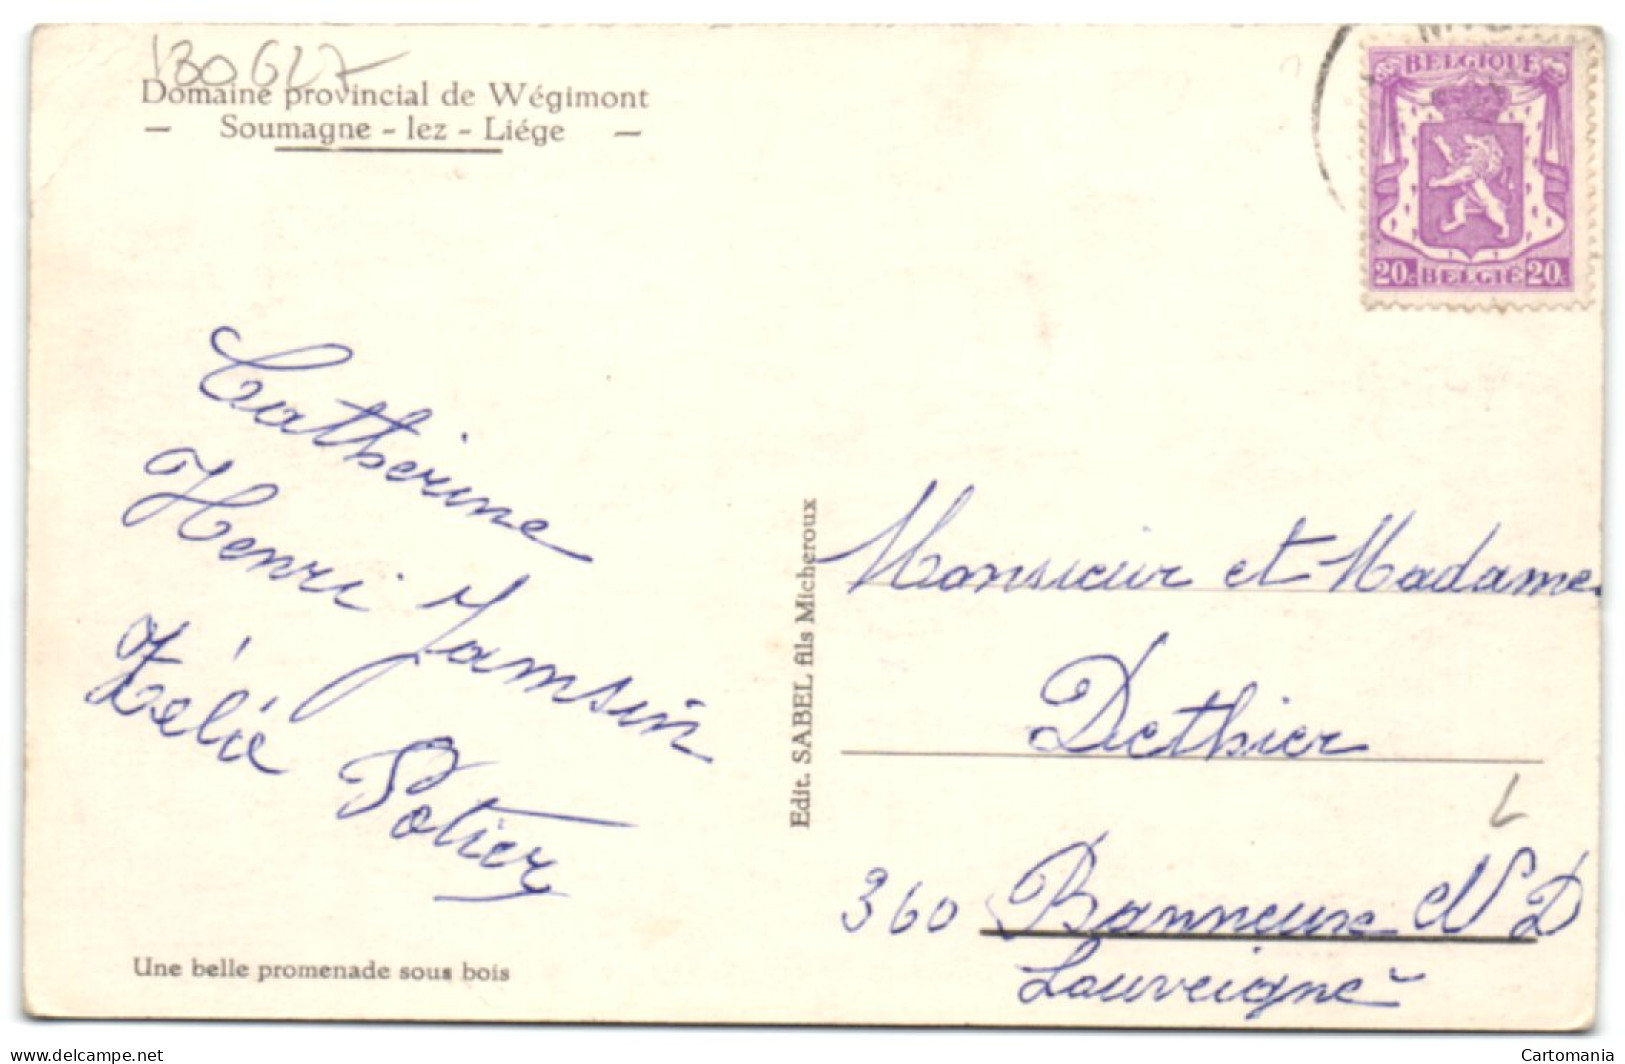 130627
Domaine provincial de Wégimont
— Soumagne - lez - Liége —
BELGIQUE
20c BELGIË 20c
Catherine
Henri Jamsin
Zélie Potier
Edit. SABEL fils Micheroux
Monsieur et Madame
Dethier
360 Banneux ND
Louveigné
Une belle promenade sous bois
www.delcampe.net
Cartomania